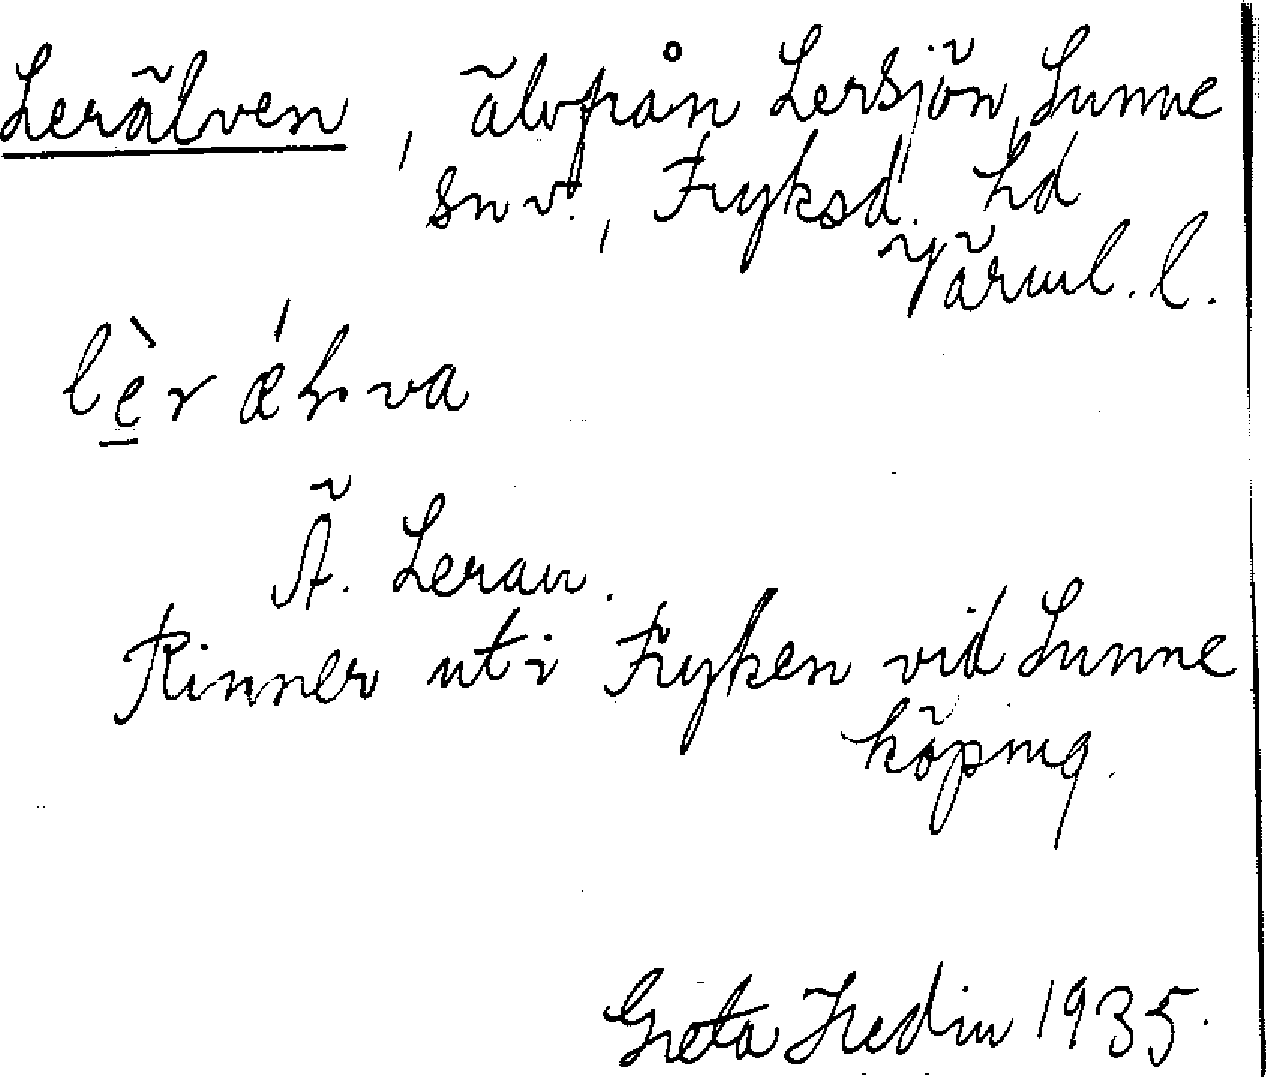 Lerälven, älv från Lersjön, Sunne
sn v., Fryksd. hd
Värml. l.
Ä. Leran.
Rinner ut i Fryken vid Sunne
köping.
Greta Hedin 1935.